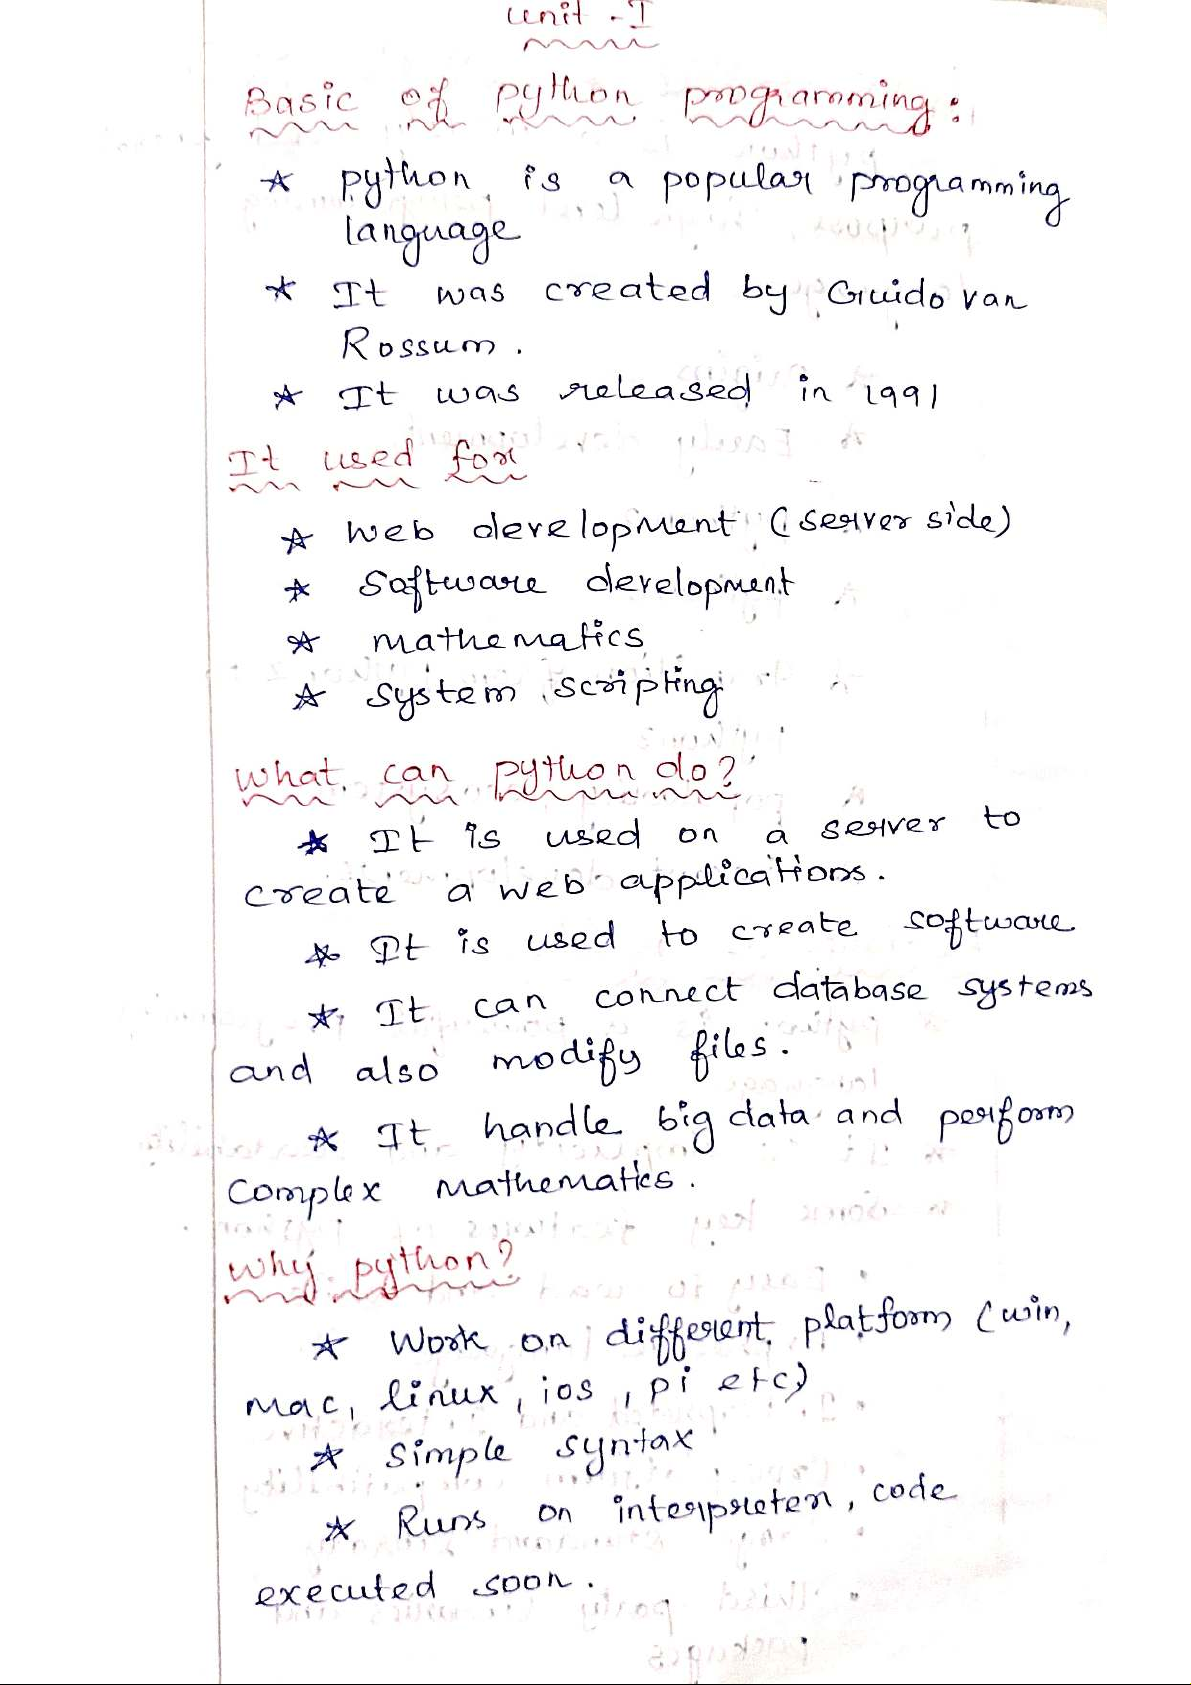 Unit - I
Basic of python programming:
* python is a popular programming
language
* It was created by Guido van
Rossum.
* It was released in 1991
It used for
* web development (server side)
* Software development
* mathematics
* System scripting
What can python do?
* It is used on a server to
create a web applications.
* It is used to create software
* It can connect database systems
and also modify files.
* It handle big data and perform
complex mathematics.
Why python?
* Work on different platform (win,
mac, linux, ios, pi etc)
* Simple syntax
* Runs on interpreter, code
executed soon.